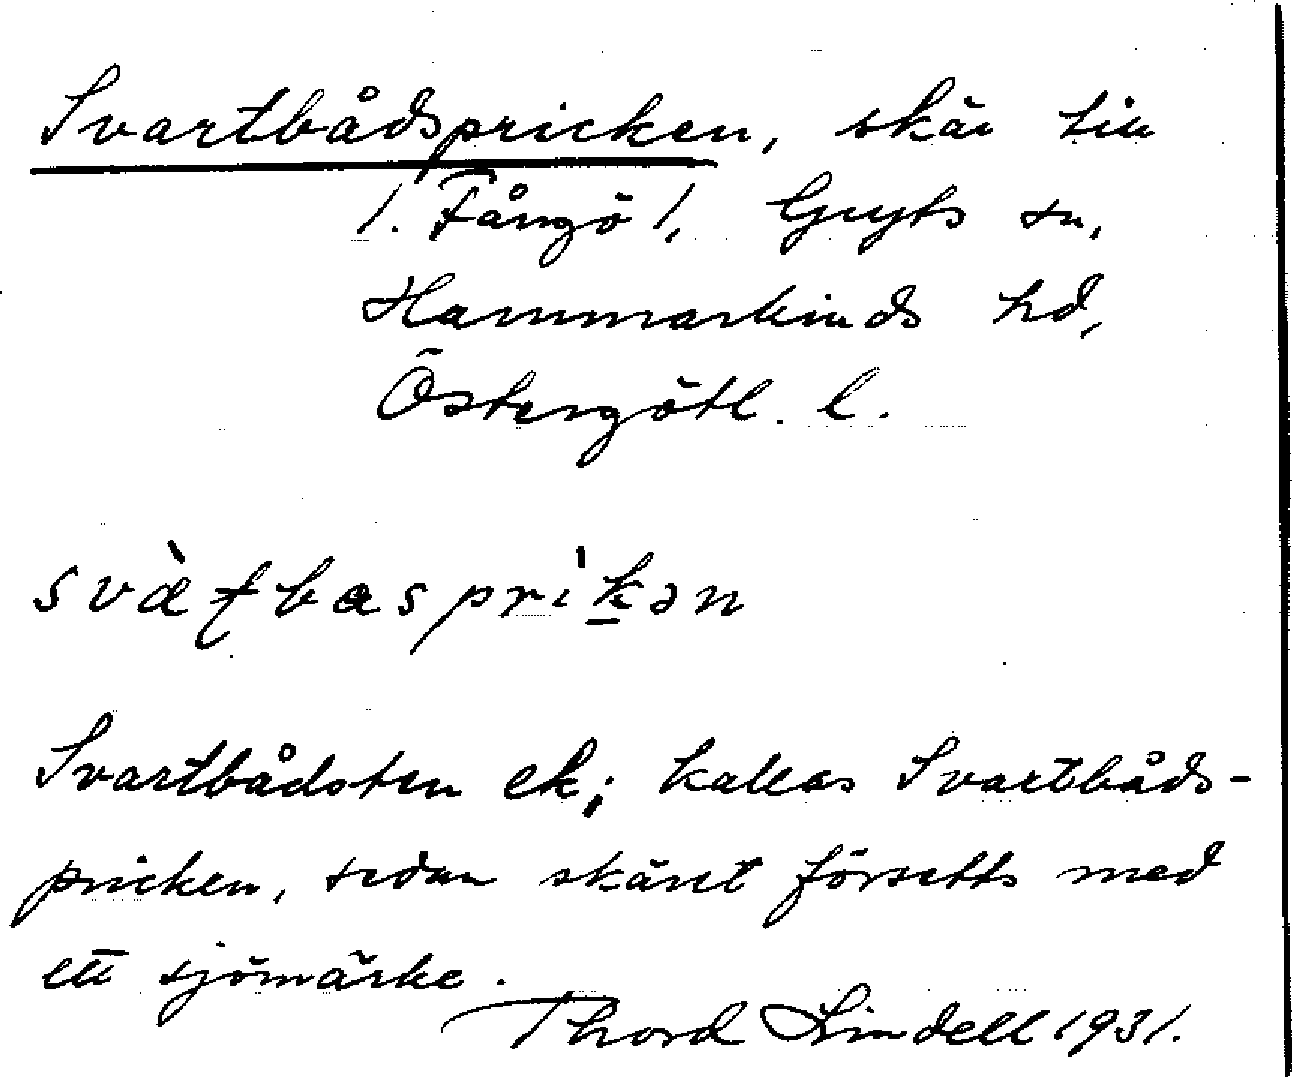 Svartbådspricken, skär till
1. Fångö 1, Gryts sn,
Hammarkinds hd,
Östergötl. l.
svàtbasprikən
Svartbådsten ek; kallas Svartbåds-
pricken, sedan skäret försetts med
ett sjömärke.
Thord Lindell 1931.